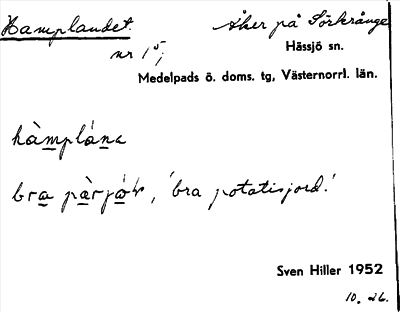 Hamplandet. Åker på Sörkrånge
nr 15; Hässjö sn.
Medelpads ö. doms. tg, Västernorrl. län.
hàmplána
bra, 'bra potatisjord.'
Sven Hiller 1952
10. 26.